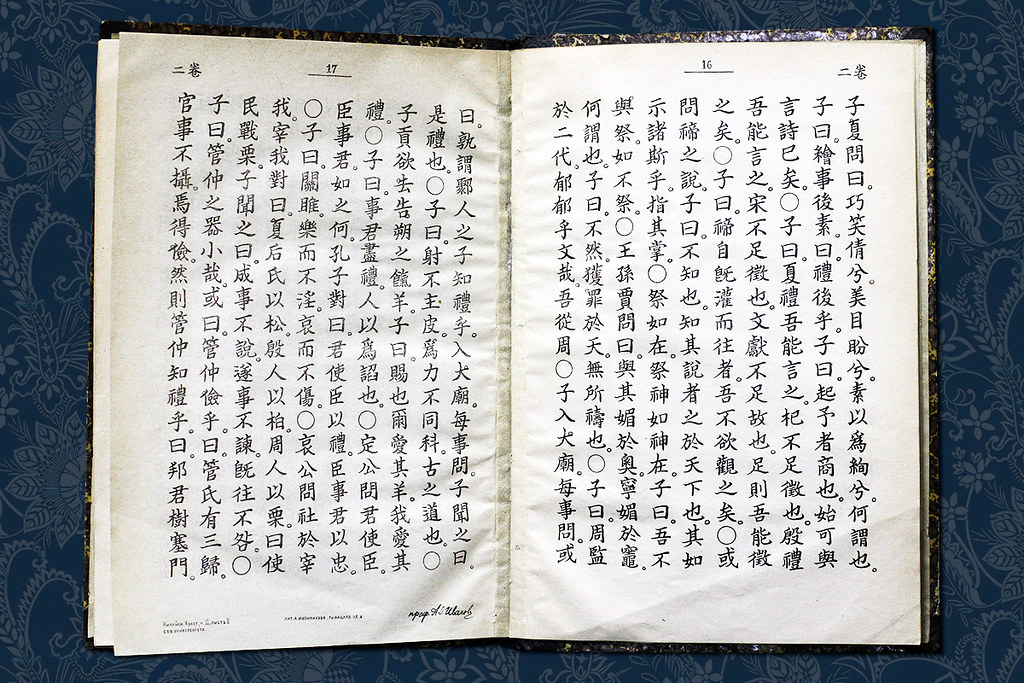 二卷
16
子夏問曰。巧笑倩兮。美目盼兮。素以爲絢兮。何謂也。
子曰。繪事後素。曰。禮後乎。子曰。起予者商也。始可與
言詩已矣。○子曰。夏禮吾能言之。杞不足徵也。殷禮
吾能言之。宋不足徵也。文獻不足故也。足則吾能徵
之矣。○子曰。禘自旣灌而往者。吾不欲觀之矣。○或
問禘之說。子曰。不知也。知其說者之於天下也。其如
示諸斯乎。指其掌。○祭如在。祭神如神在。子曰。吾不
與祭。如不祭。○王孫賈問曰。與其媚於奧。寧媚於竈。
何謂也。子曰。不然。獲罪於天。無所禱也。○子曰。周監
於二代。郁郁乎文哉。吾從周。○子入大廟。每事問。或
17
二卷
曰。孰謂鄹人之子知禮乎。入大廟。每事問。子聞之曰。
是禮也。○子曰。射不主皮。爲力不同科。古之道也。○
子貢欲去告朔之餼羊。子曰。賜也爾愛其羊。我愛其
禮。○子曰。事君盡禮。人以爲諂也。○定公問。君使臣。
臣事君。如之何。孔子對曰。君使臣以禮。臣事君以忠。
○子曰。關雎樂而不淫。哀而不傷。○哀公問社於宰
我。宰我對曰。夏后氏以松。殷人以柏。周人以栗。曰使
民戰栗。子聞之曰。成事不說。遂事不諫。旣往不咎。○
子曰。管仲之器小哉。或曰。管仲儉乎。曰。管氏有三歸。
官事不攝。焉得儉。然則管仲知禮乎。曰。邦君樹塞門。
проф. А. Ивановъ